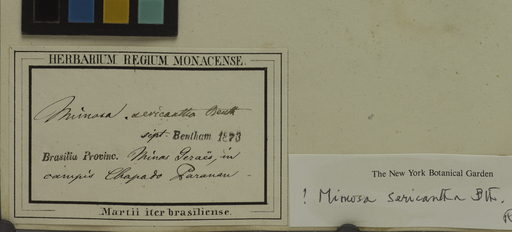 HERBARIUM REGIUM MONACENSE.
Mimosa sericantha Benth
sept. Bentham 1873
Brasilia Provinc. Minas Geraës, in
campis Chapado Paranan -
Martii iter brasiliense.
The New York Botanical Garden
! Mimosa sericantha Bth.